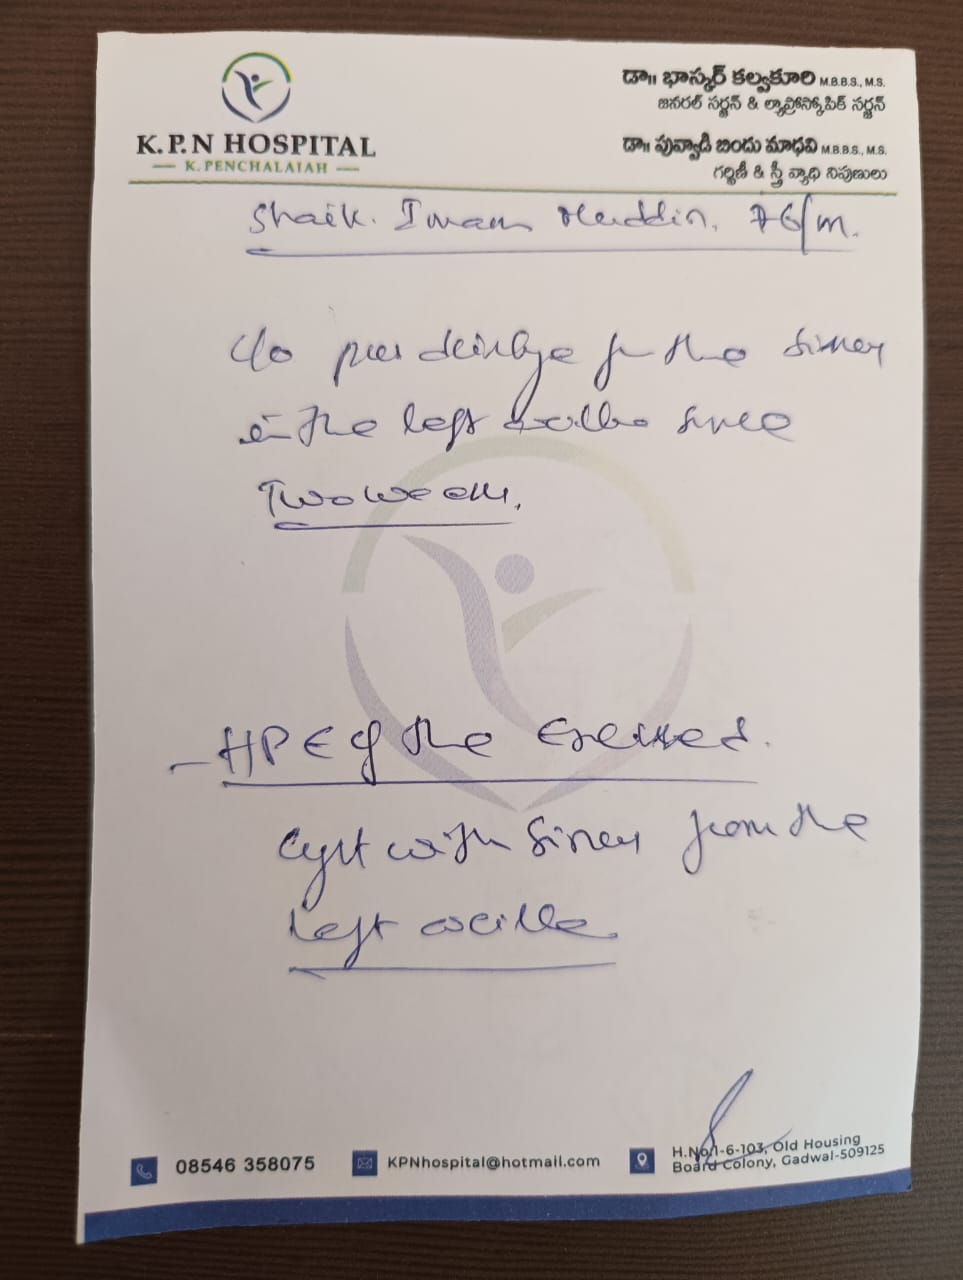 K.P.N HOSPITAL
K. PENCHALAIAH
డా॥ భాస్కర్ కల్వకూరి M.B.B.S., M.S.
జనరల్ సర్జన్ & ల్యాప్రోస్కోపిక్ సర్జన్
డా॥ పువ్వాడి బిందు మాధవి M.B.B.S., M.S.
గర్భిణీ & స్త్రీ వ్యాధి నిపుణులు
Shaik. Imam /M.
C/o pus for the Sinus
in the left axilla since
Two weeks.
- HPE of the Excised.
Cyst with Sinus from the
left axilla.
08546 358075
KPNhospital@hotmail.com
H.No.1-6-103, Old Housing
Board Colony, Gadwal-509125